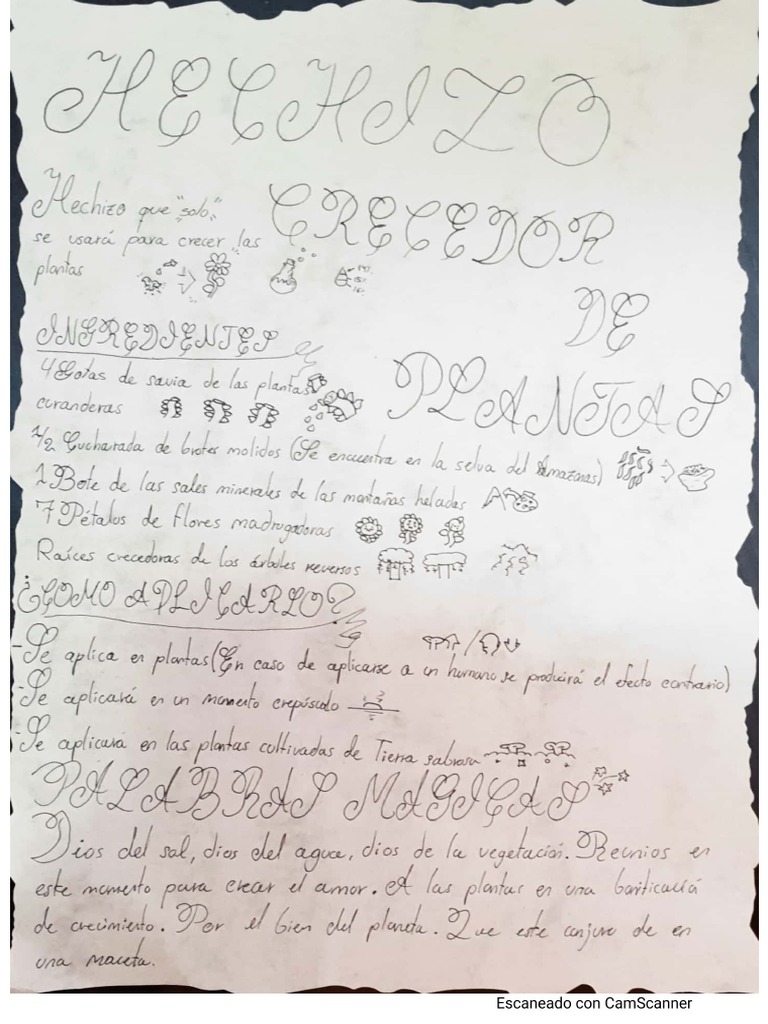 HECHIZO
CRECEDOR
DE
PLANTAS
Hechizo que "solo"
se usará para crecer las
plantas
INGREDIENTES
4 Gotas de savia de las plantas
curanderas
1/2 Cucharada de brotes molidos (Se encuentra en la selva del Amazonas)
1 Bote de las sales minerales de las montañas heladas
7 Pétalos de flores madrugadoras
Raíces crecedoras de los árboles reversos
¿COMO APLICARLO?
-Se aplica en plantas (En caso de aplicarse a un humano se producirá el efecto contrario)
-Se aplicará en un momento crepúsculo
-Se aplicará en las plantas cultivadas de Tierra sabrosa
PALABRAS MAGICAS
Dios del sol, dios del agua, dios de la vegetación. Reunios en
este momento para crear el amor. A las plantas en una
de crecimiento. Por el bien del planeta. Que este conjuro de en
una maceta.
Escaneado con CamScanner